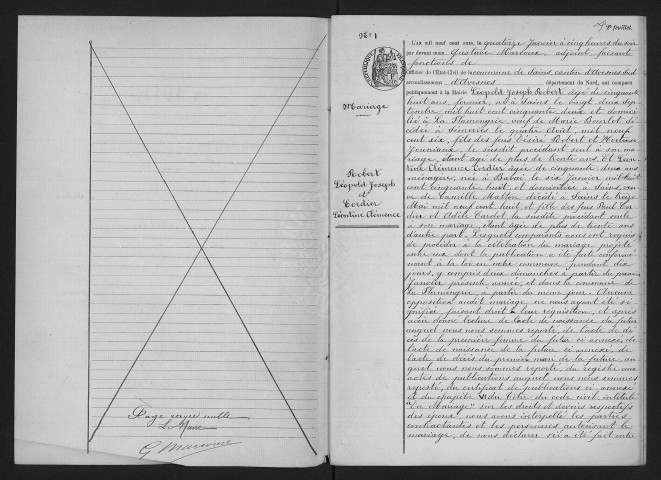 Page rayée nulle
Le Maire
G Marcoux
Mariage
Robert
Léopold Joseph
et
Cordier
Léontine Clémence
2e feuillet.
L'an mil neuf cent onze, le quatorze Janvier à cinq heures du soir
par devant nous Gustave Marcoux, adjoint faisant
fonctions de
Officier de l'État-Civil de la commune de Sains, canton d'Avesnes Sud
arrondissement d'Avesnes département du Nord, ont comparu
publiquement à la Mairie Léopold Joseph Robert âgé de cinquante
huit ans, fermier, né à Sains le vingt deux Sep
tembre mil huit cent cinquante deux et domici
lié à La Flamengrie, veuf de Marie Bourlet dé
cédée à Féneries le quatre Août, mil neuf
cent six, fils des feus Désiré Robert et Hortense
Jouniaux, le susdit procédant seul à son ma
riage, étant âgé de plus de trente ans. Et Léon
tine Clémence Cordier âgée de cinquante deux ans
ménagère, née à Babai le six Janvier mil huit
cent cinquante huit et domiciliée à Sains, veu
ve de Camille Matton décédé à Sains le treize
Mai mil neuf cent huit et fille des feus Paul Cor
dier et Adèle Cardot, la susdite procédant seule
à son mariage, étant âgée de plus de trente ans
d'autre part. Lesquels comparants nous ont requis
de procéder à la célébration du mariage projeté
entre eux dont la publication a été faite conformé
ment à la loi en notre commune pendant dix
jours, y compris deux dimanches à partir du premier
Janvier présente année, et dans la commune de
la Flamengrie, à partir du même jour. Aucune
opposition audit mariage ne nous ayant été si
gnifiée, faisant droit à leur réquisition, et après
avoir donné lecture de l'acte de naissance du futur
auquel nous nous sommes reporté, de l'acte de dé
cès de la première femme du futur ci annexé, de
l'acte de naissance de la future ci annexé, de
l'acte de décès du premier mari de la future, au
quel nous nous sommes reporté, du registre aux
actes de publications auquel nous nous sommes
reporté, du certificat de publications ci annexé
et du chapitre VI du Titre du code civil intitulé
"Du Mariage" sur les droits et devoirs respectifs
des époux, nous avons interpellé les parties
contractantes et les personnes autorisant le
mariage, de nous déclarer s'il a été fait entre